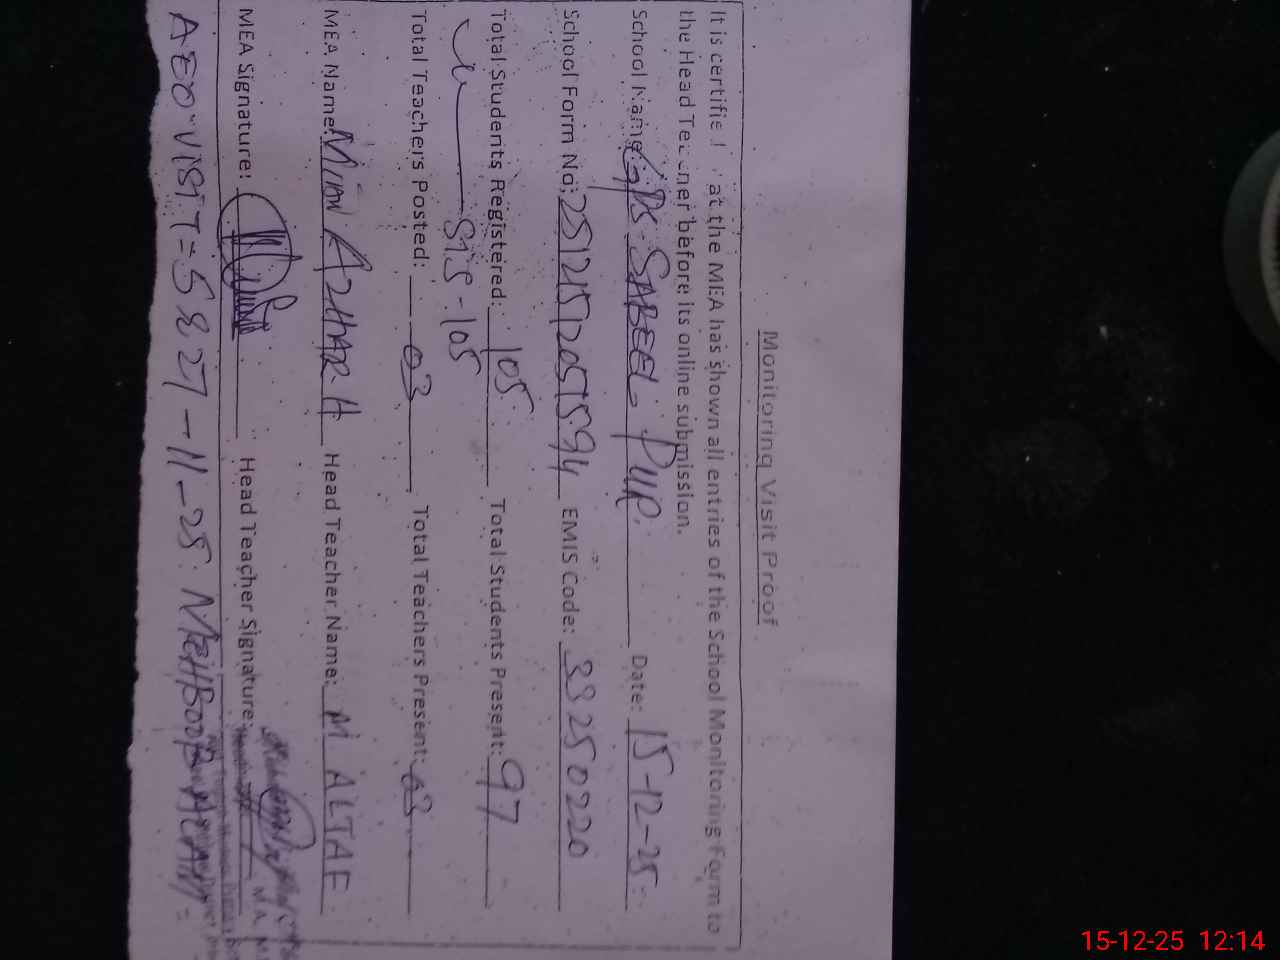 Monitoring Visit Proof
It is certified that the MEA has shown all entries of the School Monitoring Form to
the Head Teacher before its online submission.
School Name: GPS. SABEEL PUR. Date: 15-12-25
School Form No: 251215120515594 EMIS Code: 33250220
Total Students Registered: 105 Total Students Present: 97
SIS-105
Total Teachers Posted: 03 Total Teachers Present: 03
MEA Name: MIAN AZHAR H Head Teacher Name: M ALTAF
MEA Signature: Head Teacher Signature:
AEO-VISIT=5827-11-25: MEHBOOB
15-12-25 12:14